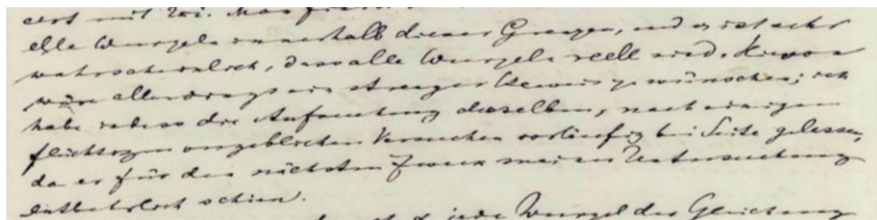 elle Wurzeln innerhalb dieser Grenzen, und es ist sehr
wahrscheinlich, dass alle Wurzeln reell sind. Hiervon
wäre allerdings ein strenger Beweis zu wünschen; ich
habe indess die Aufsuchung desselben, nach einigen
flüchtigen vergeblichen Versuchen vorläufig bei Seite gelassen,
da er für den nächsten Zweck meiner Untersuchung
entbehrlich schien.
jede Wurzel der Gleichung